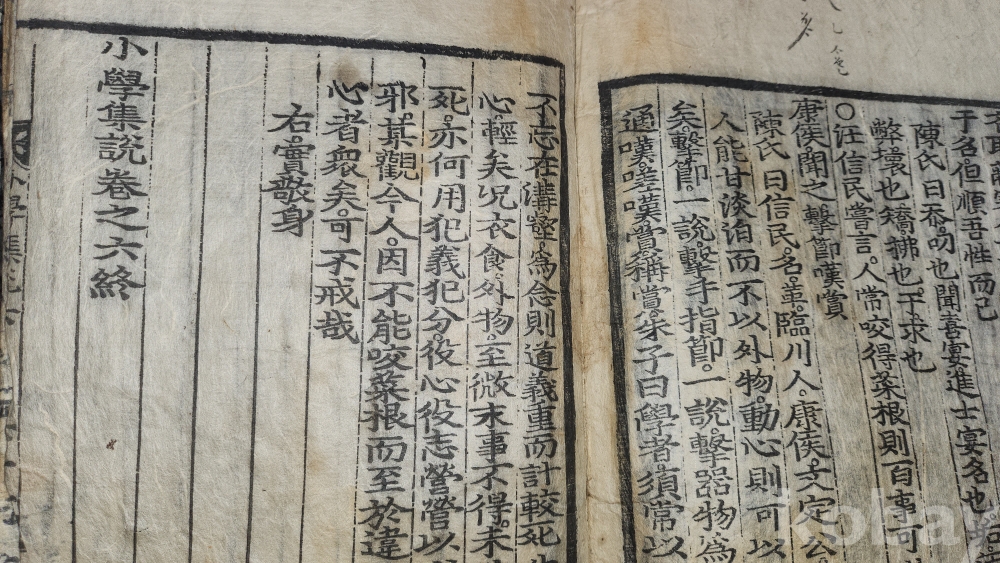 于名。但順吾性而已
陳氏曰。忝。吻也。聞喜宴。進士宴名也
弊。壞也。矯。拂也。干。求也
〇汪信民嘗言。人常咬得菜根則百事可
康侯聞之擊節嘆賞
陳氏曰。信民。名革。臨川人。康侯。文定公
人能甘淡泊而不以外物。動心則可以
矣。擊節。一說。擊手指節。一說擊器物爲
通。嘆。嗟嘆。賞。稱賞。朱子曰。學者。須常以
不忘在溝壑。爲念則道義重而計較死
心。輕矣。况衣食。外物。至微末事。不得。未
死。亦何用犯義犯分。役心役志。營營以
邪。某觀今人。因不能咬菜根而至於違
心者衆矣。可不戒哉
右。實敬身
小學集說卷之六終